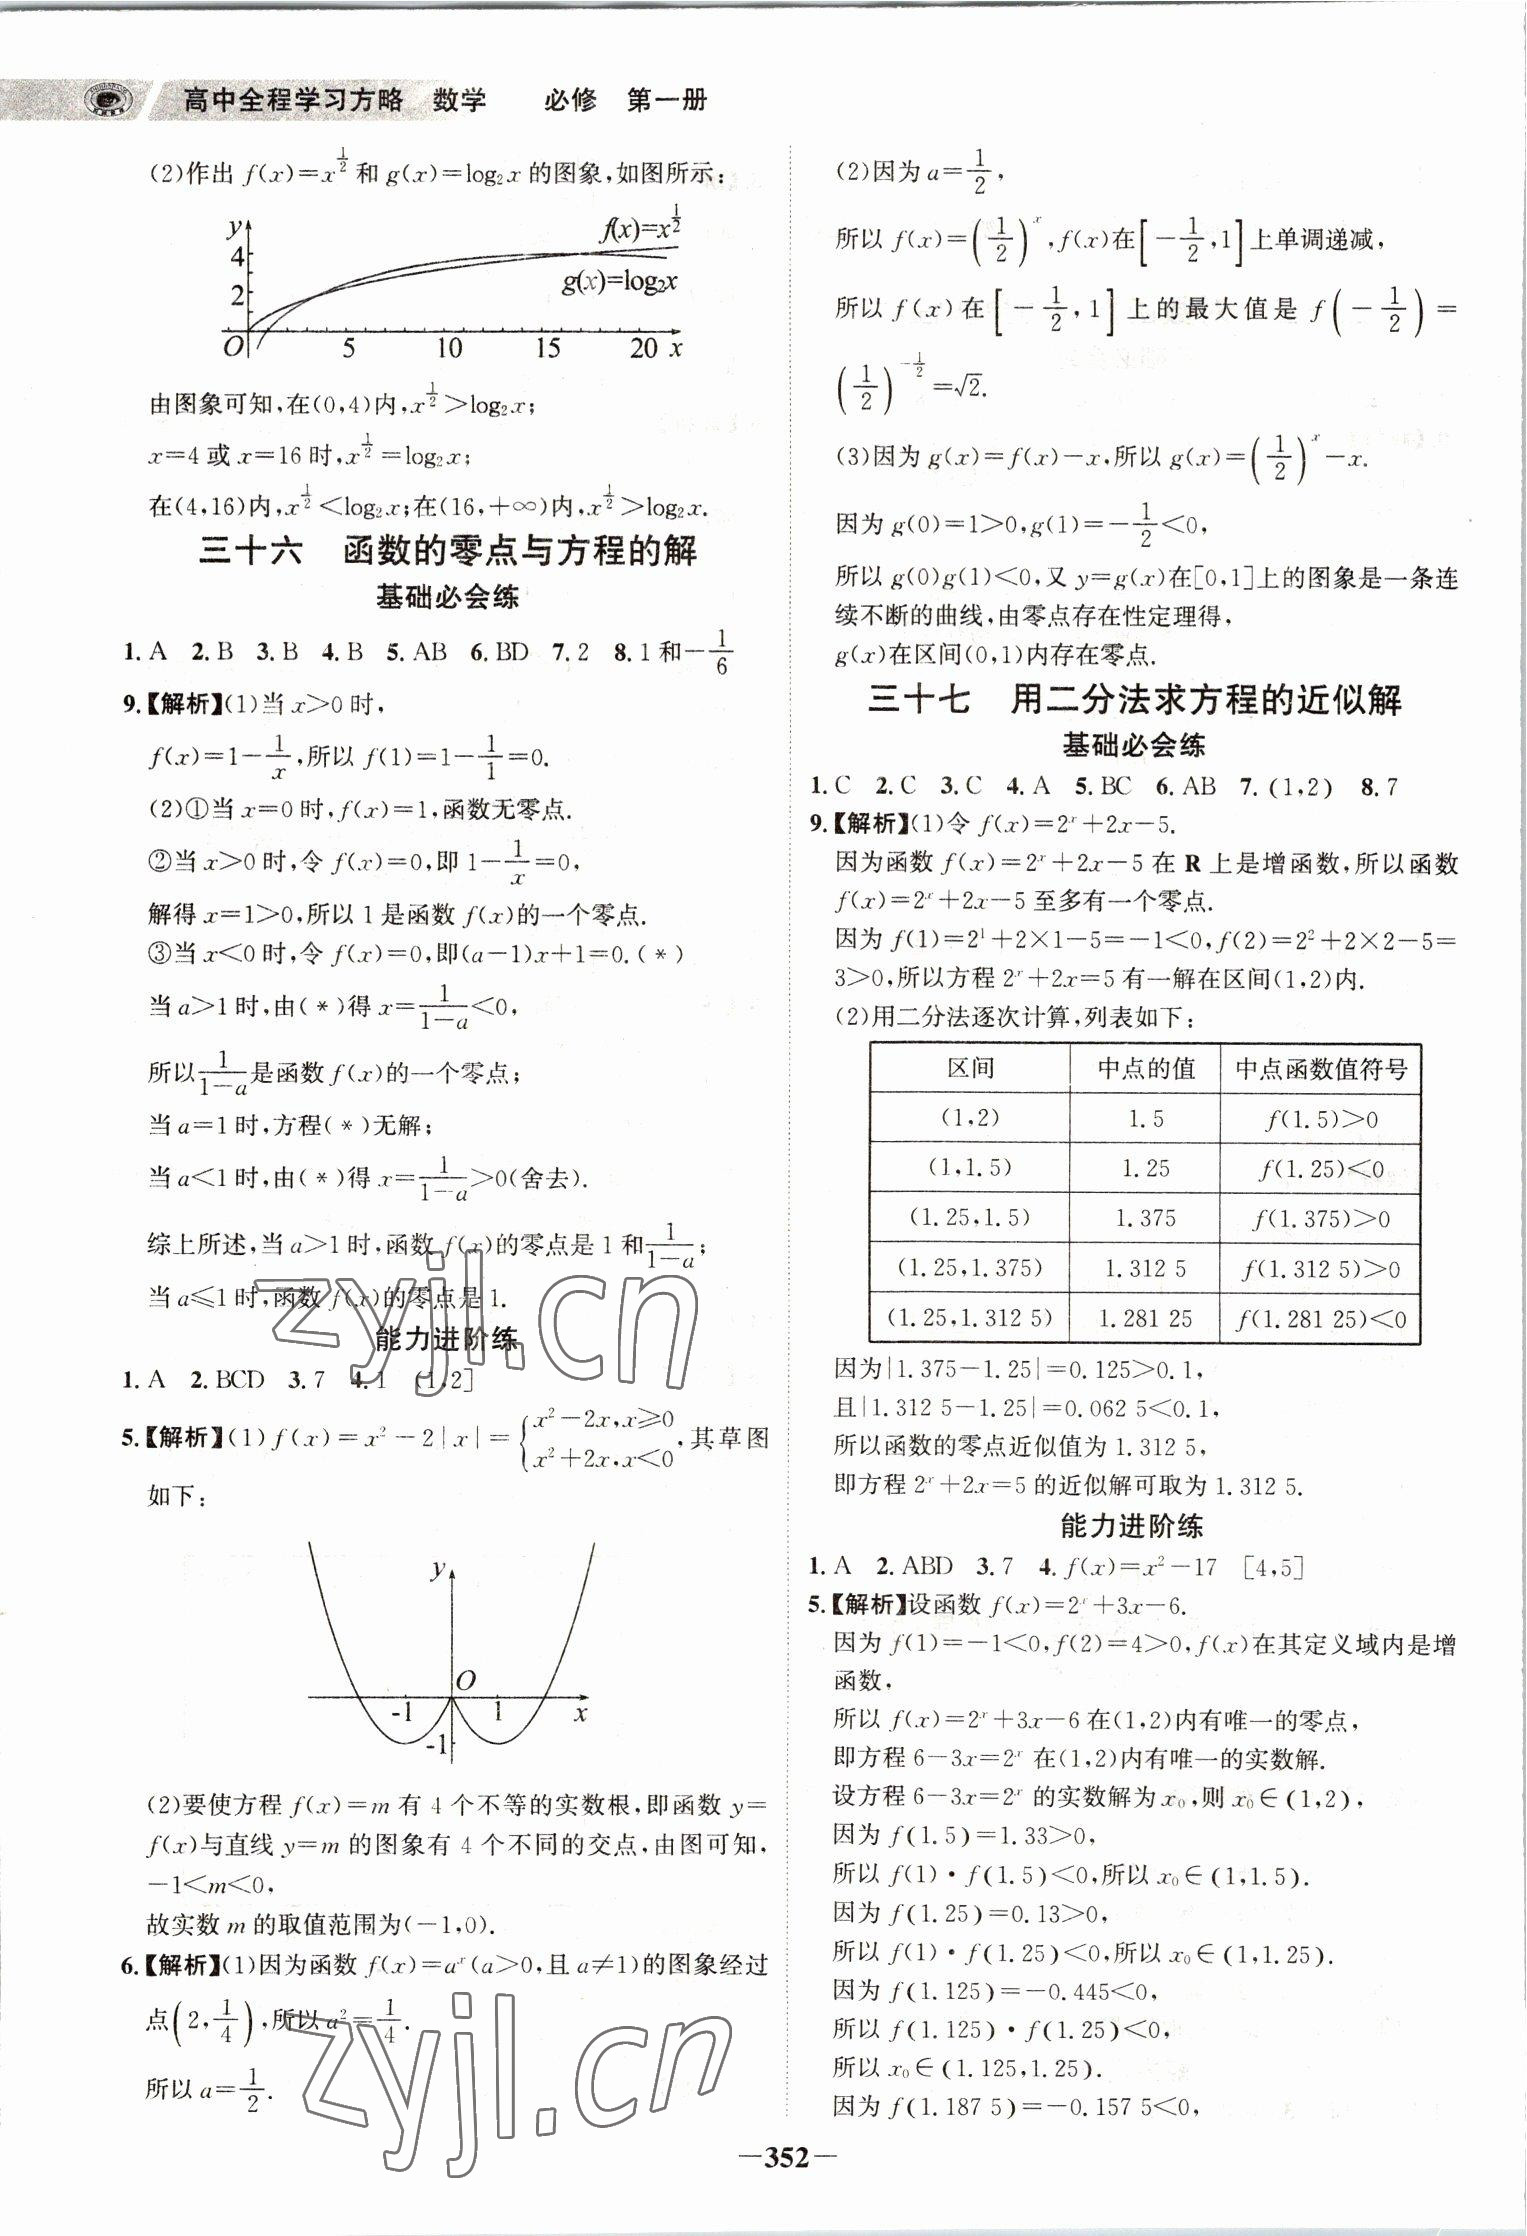 高中全程学习方略 数学 必修 第一册
(2)作出 f(x)=x^{1/2} 和 g(x)=log₂x 的图象,如图所示:
y
f(x)=x^{1/2}
4
g(x)=log₂x
2
O 5 10 15 20 x
由图象可知,在(0,4)内,x^{1/2}>log₂x;
x=4 或 x=16 时,x^{1/2}=log₂x;
在(4,16)内,x^{1/2}<log₂x;在(16,+∞)内,x^{1/2}>log₂x.
三十六 函数的零点与方程的解
基础必会练
1.A 2.B 3.B 4.B 5.AB 6.BD 7.2 8.1和-1/6
9.【解析】(1)当 x>0 时,
f(x)=1-1/x,所以 f(1)=1-1/1=0.
(2)①当 x=0 时,f(x)=1,函数无零点.
②当 x>0 时,令 f(x)=0,即 1-1/x=0,
解得 x=1>0,所以 1 是函数 f(x)的一个零点.
③当 x<0 时,令 f(x)=0,即(a-1)x+1=0.(*)
当 a>1 时,由(*)得 x=1/(1-a)<0,
所以1/(1-a)是函数 f(x)的一个零点;
当 a=1 时,方程(*)无解;
当 a<1 时,由(*)得 x=1/(1-a)>0(舍去).
综上所述,当 a>1 时,函数 f(x)的零点是 1 和1/(1-a);
当 a≤1 时,函数 f(x)的零点是 1.
能力进阶练
1.A 2.BCD 3.7 4.1 (1,2]
5.【解析】(1)f(x)=x²-2|x|={x²-2x,x≥0
x²+2x,x<0,其草图
如下:
y
O
-1 1 x
-1
(2)要使方程 f(x)=m 有 4 个不等的实数根,即函数 y=
f(x)与直线 y=m 的图象有 4 个不同的交点,由图可知,
-1<m<0,
故实数 m 的取值范围为(-1,0).
6.【解析】(1)因为函数 f(x)=aˣ(a>0,且 a≠1)的图象经过
点(2,1/4),所以 a²=1/4.
所以 a=1/2.
(2)因为 a=1/2,
所以 f(x)=(1/2)ˣ,f(x)在[-1/2,1]上单调递减,
所以 f(x)在[-1/2,1]上的最大值是 f(-1/2)=
(1/2)^{-1/2}=√2.
(3)因为 g(x)=f(x)-x,所以 g(x)=(1/2)ˣ-x.
因为 g(0)=1>0,g(1)=-1/2<0,
所以 g(0)g(1)<0,又 y=g(x)在[0,1]上的图象是一条连
续不断的曲线,由零点存在性定理得,
g(x)在区间(0,1)内存在零点.
三十七 用二分法求方程的近似解
基础必会练
1.C 2.C 3.C 4.A 5.BC 6.AB 7.(1,2) 8.7
9.【解析】(1)令 f(x)=2ˣ+2x-5.
因为函数 f(x)=2ˣ+2x-5 在 R 上是增函数,所以函数
f(x)=2ˣ+2x-5 至多有一个零点.
因为 f(1)=2¹+2×1-5=-1<0,f(2)=2²+2×2-5=
3>0,所以方程 2ˣ+2x=5 有一解在区间(1,2)内.
(2)用二分法逐次计算,列表如下:
区间 中点的值 中点函数值符号
(1,2) 1.5 f(1.5)>0
(1,1.5) 1.25 f(1.25)<0
(1.25,1.5) 1.375 f(1.375)>0
(1.25,1.375) 1.312 5 f(1.312 5)>0
(1.25,1.312 5) 1.281 25 f(1.281 25)<0
因为|1.375-1.25|=0.125>0.1,
且|1.312 5-1.25|=0.062 5<0.1,
所以函数的零点近似值为 1.312 5,
即方程 2ˣ+2x=5 的近似解可取为 1.312 5.
能力进阶练
1.A 2.ABD 3.7 4.f(x)=x²-17 [4,5]
5.【解析】设函数 f(x)=2ˣ+3x-6.
因为 f(1)=-1<0,f(2)=4>0,f(x)在其定义域内是增
函数,
所以 f(x)=2ˣ+3x-6 在(1,2)内有唯一的零点,
即方程 6-3x=2ˣ 在(1,2)内有唯一的实数解.
设方程 6-3x=2ˣ 的实数解为 x₀,则 x₀∈(1,2),
因为 f(1.5)=1.33>0,
所以 f(1)·f(1.5)<0,所以 x₀∈(1,1.5).
因为 f(1.25)=0.13>0,
所以 f(1)·f(1.25)<0,所以 x₀∈(1,1.25).
因为 f(1.125)=-0.445<0,
所以 f(1.125)·f(1.25)<0,
所以 x₀∈(1.125,1.25).
因为 f(1.187 5)=-0.157 5<0,
—352—
zyjl.cn
zyjl.cn